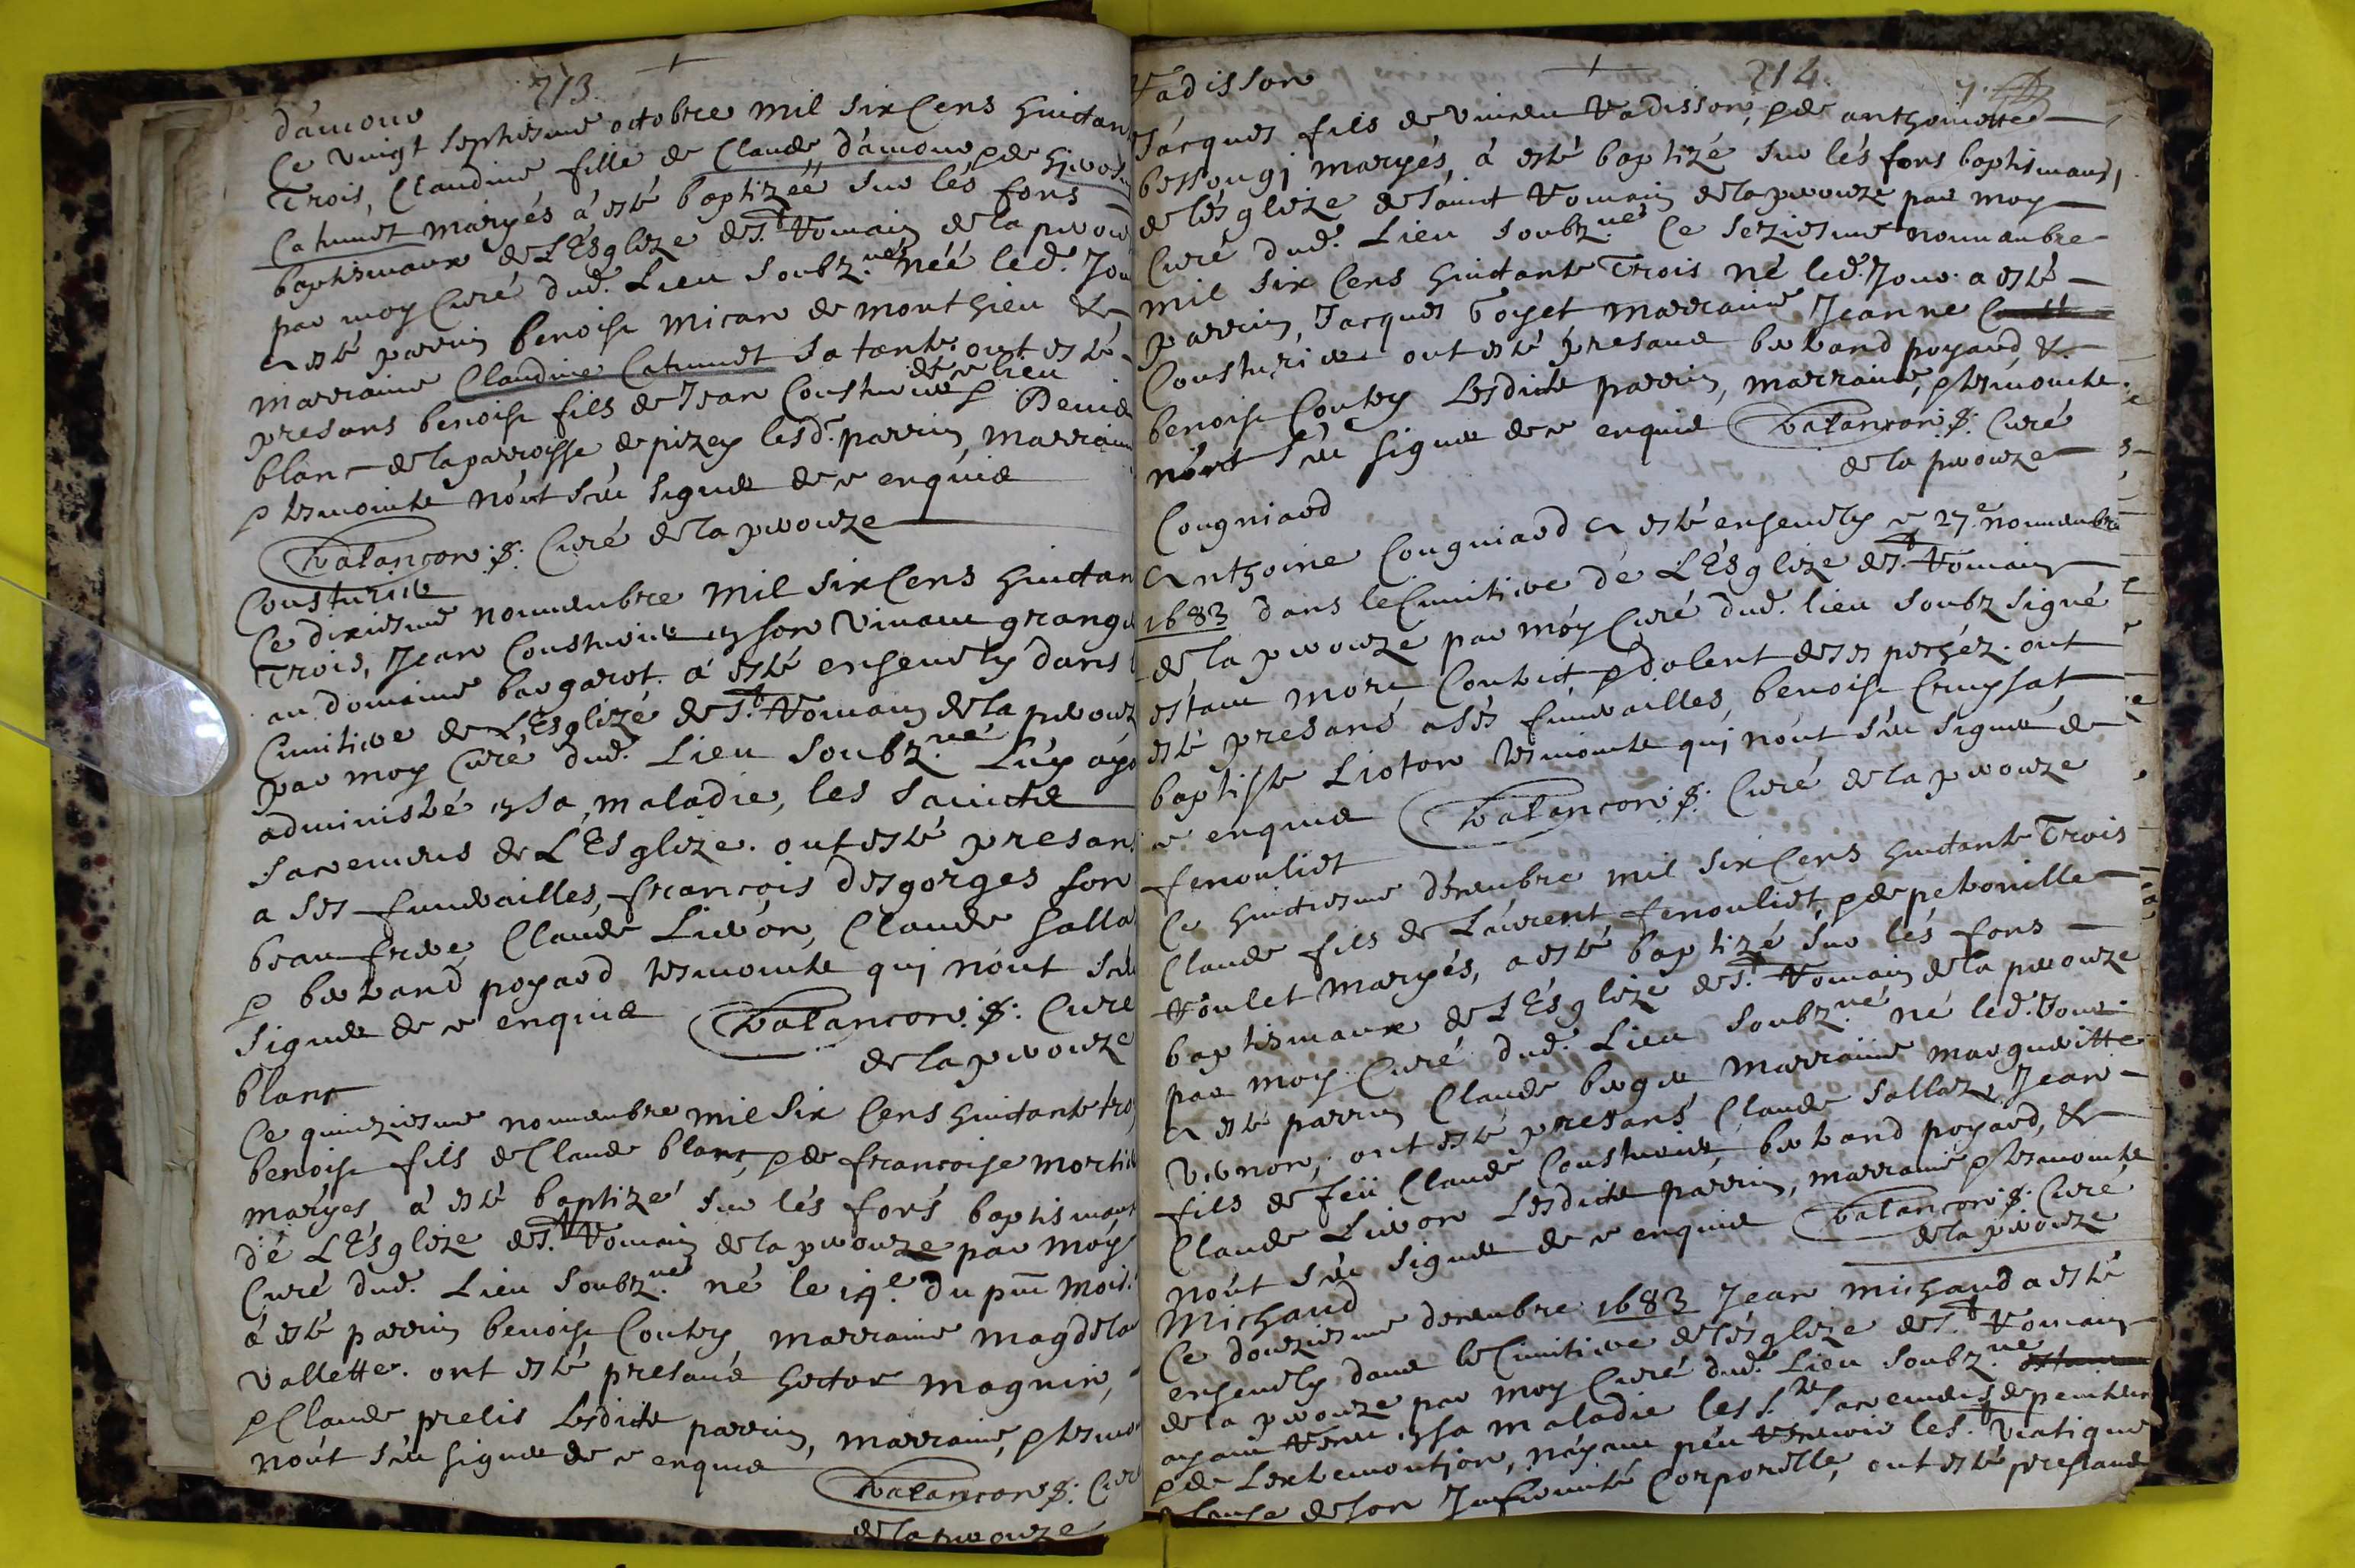 713.
damour
Ce vingt septiesme octobre mil six Cens huictan
Trois, Claudine fille de Claude damour, & de
Catumet maryés á esté baptizéé sur lés fons
baptismaux de L'Esglize de St. Romain de la pirouz
par moy Curé dud. Lieu Soubz.né néé led. Jou
a esté parrin benoist mican de monthieu &
marraine Claudine Catumet sa tante. ont esté
presans benoist fils de Jean Cousturier de ce lieu &
blanc de la parroisse de pizey lesd. parrin, marrain
& tesmoints nont sceu signer de ce enquis
Valancon p: Curé de la pirouze
Cousturier
Ce dixiesme nouuembre mil six Cens huictan
Trois, Jean Cousturier en son viuant grange
au domaine bargarot. a esté enseuely dans l
Cimitiere de L'Esglizé de St. Romain de la pirouz
par moy Curé dud. Lieu Soubz.né Luy aya
administré en sa maladie, les Saincts
Sacemens de L'Esglize. ont esté presans
a ses funerailles, francois desgorges son
beau frere, Claude Liuron, Claude Salla
& bertrand poyard tesmoints qui nont sceu
signer de ce enquis Valancon p: Curé
de la pirouze
blanc
Ce quinziesme nouuembre mil Six Cens huictante tro
benoist fils de Claude blanc, & de francoise mortie
maryes a esté baptizé sur lés fons baptismaux
dé L'Esglize de St. Romain de la pirouze par moy
Curé dud. Lieu Soubz.né né le 14.e du pnt mois.
á esté parrin benoist Coutry, marraine magdela
Vallette. ont esté presans hector magnin,
& Claude prelis Lesdicts parrin, marraine, & tesmo
nont sceu signer de ce enquis
Valancon p: Cur
de la pirouze
714.
Radisson
Jacques fils de Vincen Radisson, & de anthoinette
bessougi maryés, á esté baptizé sur lés fons baptismaux,
de lésglize de Sainct Romain de la pirouze par moy
Curé dud. Lieu Soubz.né Ce seziesme nouuambre
mil six Cens huictante Trois né led. Jour. a esté
parrin, Jacques Goyet marraine Jeanne
Cousturier ont esté presans bertrand poyard, &
benoist Coutry Lesdicts parrin, marraine, & tesmoints.
nont sceu signer de ce enquis Valancon p: Curé
de la pirouze
Cougniard
Anthoine Cougniard a esté enseuely ce 27.e nouuembre
1683 dans le Cimitiere dé L'Esglize de St. Romain
de la pirouze par moy Curé dud. lieu Soubz signé
estant mort Contrict & dolent de ses pechéz. ont
esté presans a sés funerailles, benoist Crupsat
baptiste Lioton tesmoints qui nont sceu signer de
ce enquis Valancon p: Curé de la pirouze
fenouliet
Ce huictiesme décembre mil six Cens huictante Trois
Claude fils de Laurent fenouliet, & de petronille
Roulet maryés, a esté baptizé sur lés fons
baptismaux de L'Esglize de St. Romain de la pirouze
par moy Curé dud. Lieu Soubz.né né led. Jour
a esté parrin Claude berger marraine margueritte
Vernon, ont esté presans Claude Sallaz, Jean
fils de feü Claude Cousturier, bertrand poyard, &
Claude Liuron Lesdicts parrin, marraine & tesmoints
nont sceu signer de ce enquis Valancon p: Curé
de la pirouze
Michaud
Ce douziesme decembre 1683 Jean michaud a esté
enseuely dans le Cimitiere de lésglize de St. Romain
de la pirouze par moy Curé dud. Lieu Soubz.né
ayant receu en sa maladie les Sts. Sacemens de peniten
& de Lextremontion, nayant peu receuoir le St. Viatique
a cause de son Infirmité Corporelle, ont esté presans